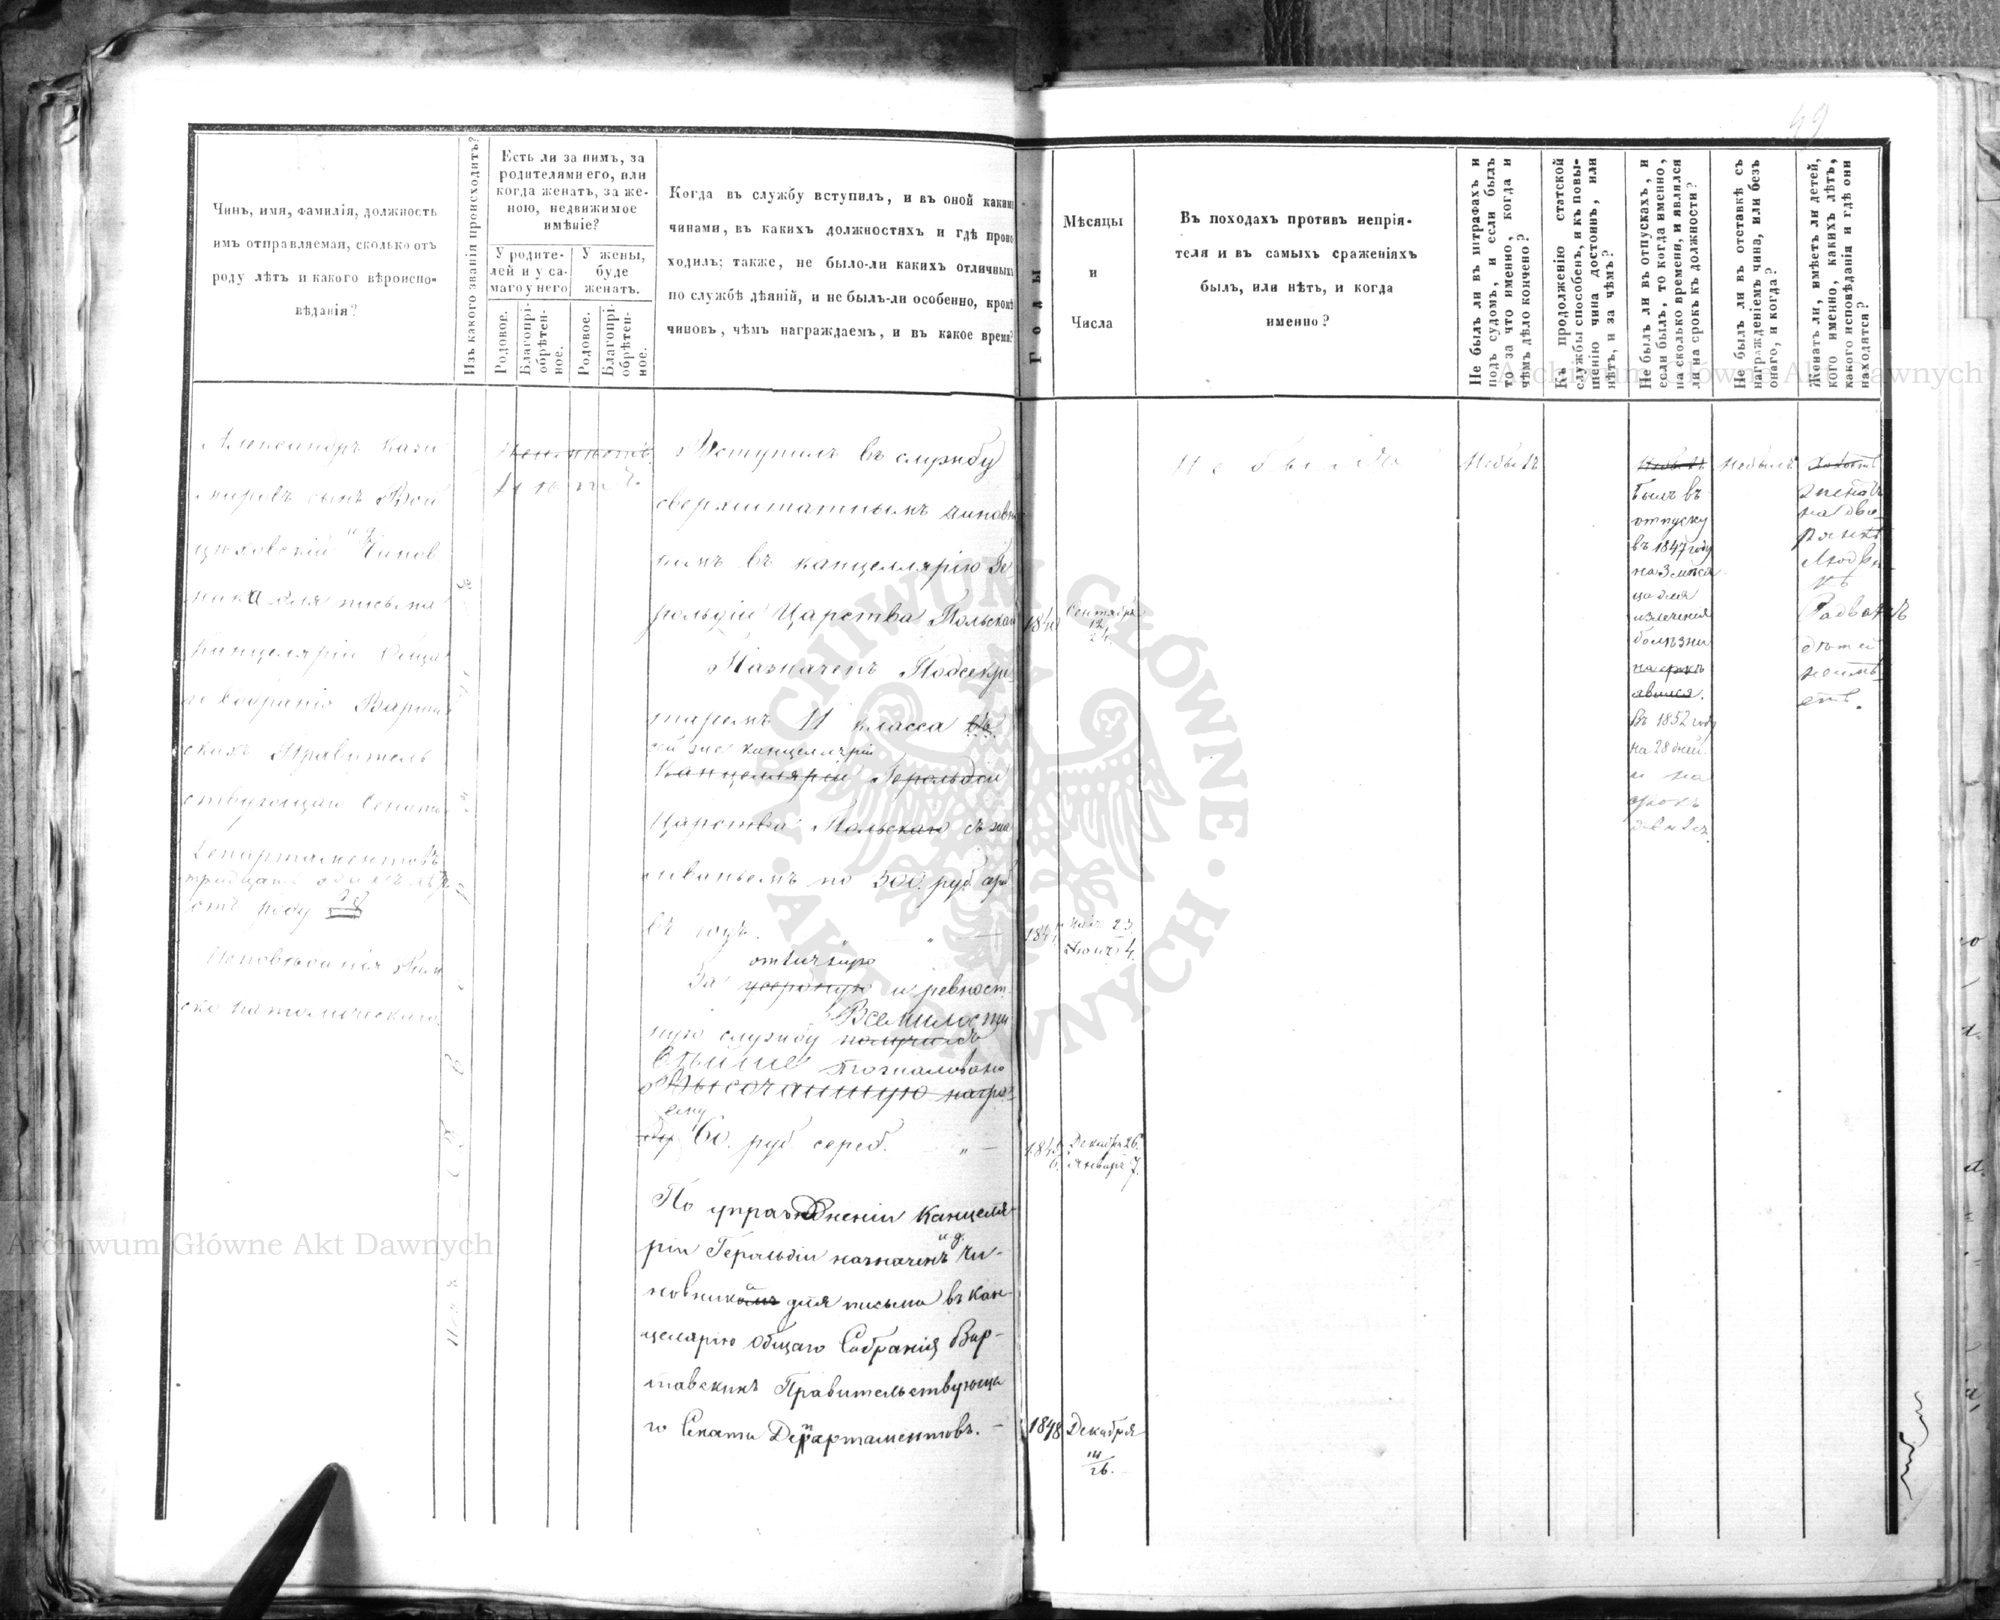 49
Чинъ, имя, фамилія, должность
имъ отправляемая, сколько отъ
роду лѣтъ и какого вѣроиспо-
вѣданія?
Изъ какого званія происходитъ?
Есть ли за нимъ, за
родителями его, или
когда женатъ, за же-
ною, недвижимое
имѣніе?
У родите-
лей и у са-
маго у него
У жены,
буде
женатъ.
Родовое.
Благопрі-
обрѣтен-
ное.
Родовое.
Благопрі-
обрѣтен-
ное.
Когда въ службу вступилъ, и въ оной какими
чинами, въ какихъ должностяхъ и гдѣ прои
ходилъ; также, не было-ли какихъ отличныхъ
по службѣ дѣяній, и не былъ-ли особенно, кромѣ
чиновъ, чѣмъ награждаемъ, и въ какое время?
Годы
Мѣсяцы
и
Числа
Въ походахъ противъ непрія-
теля и въ самыхъ сраженіяхъ
былъ, или нѣтъ, и когда
именно?
Не былъ ли въ штрафахъ и
подъ судомъ, и если былъ
то за что именно, когда и
чѣмъ дѣло кончено?
Къ продолженію статской
службы способенъ, и къ повы-
шенію чина достоинъ, или
нѣтъ, и за чѣмъ?
Не былъ ли въ отпускахъ, и
если былъ, то когда именно,
на сколько времени, и явился
ли на срокъ къ должности?
Не былъ ли въ отставкѣ съ
награжденіемъ чина, или безъ
онаго, и когда?
Женатъ ли, имѣетъ ли дѣтей,
кого именно, какихъ лѣтъ,
какого исповѣданія и гдѣ они
находятся?
Александръ Кази
міровъ сынъ Вой
цѣховскій и д. Чинов
ника для письма
Канцеляріи Обща
го Собранія Варшав
скихъ Правитель
ствующаго Сената
Департаментовъ
тридцать одинъ лѣтъ
отъ роду
Исповѣданія Рим
ско католическаго
Неимѣетъ.
Нѣтъ.
Вступилъ въ службу
сверхштатнымъ чиновни
комъ въ канцеллярію Ге
рольдіи Царства Польскаго
1840
Сентября
12
24.
Назначенъ Подсекре
таремъ 11 класса
сей же канцелляріи
Канцелляріи Герольдіи
Царства Польскаго съ жа
лованьемъ по 300. руб. сереб.
въ годъ.
184
Мая 23.
Іюня 4.
отличную
За усердную и ревност
Всемилости
ную службу получилъ
вѣйше пожаловано
Высочайшую награ
ему
ду 60. руб сереб.
1845
6.
Декабр 26.
Январ 7.
По упраздненіи Канцеля
ріи Герольдіи назначенъ и.д. Чи-
новника для письма въ Кан-
целярію Общаго Собранія Вар-
шавскихъ Правительствующа
го Сената Департаментовъ. —
1848
Декабря
14
26.
Не былъ
Небылъ
Небылъ
былъ въ
отпуску
въ 1847 году
на 3 мѣся
ца для
излеченія
болѣзни
на срокъ
явился.
Въ 1852 году
на 28 дней
и на
срокъ
явился
Небылъ
Холостъ
женатъ
на дво
рянкѣ
Людви
кѣ
Радван
дѣтей
неимѣ
етъ.
Archiwum Główne Akt Dawnych
Archiwum Główne Akt Dawnych
ARCHIWUM GŁÓWNE · AKT DAWNYCH ·